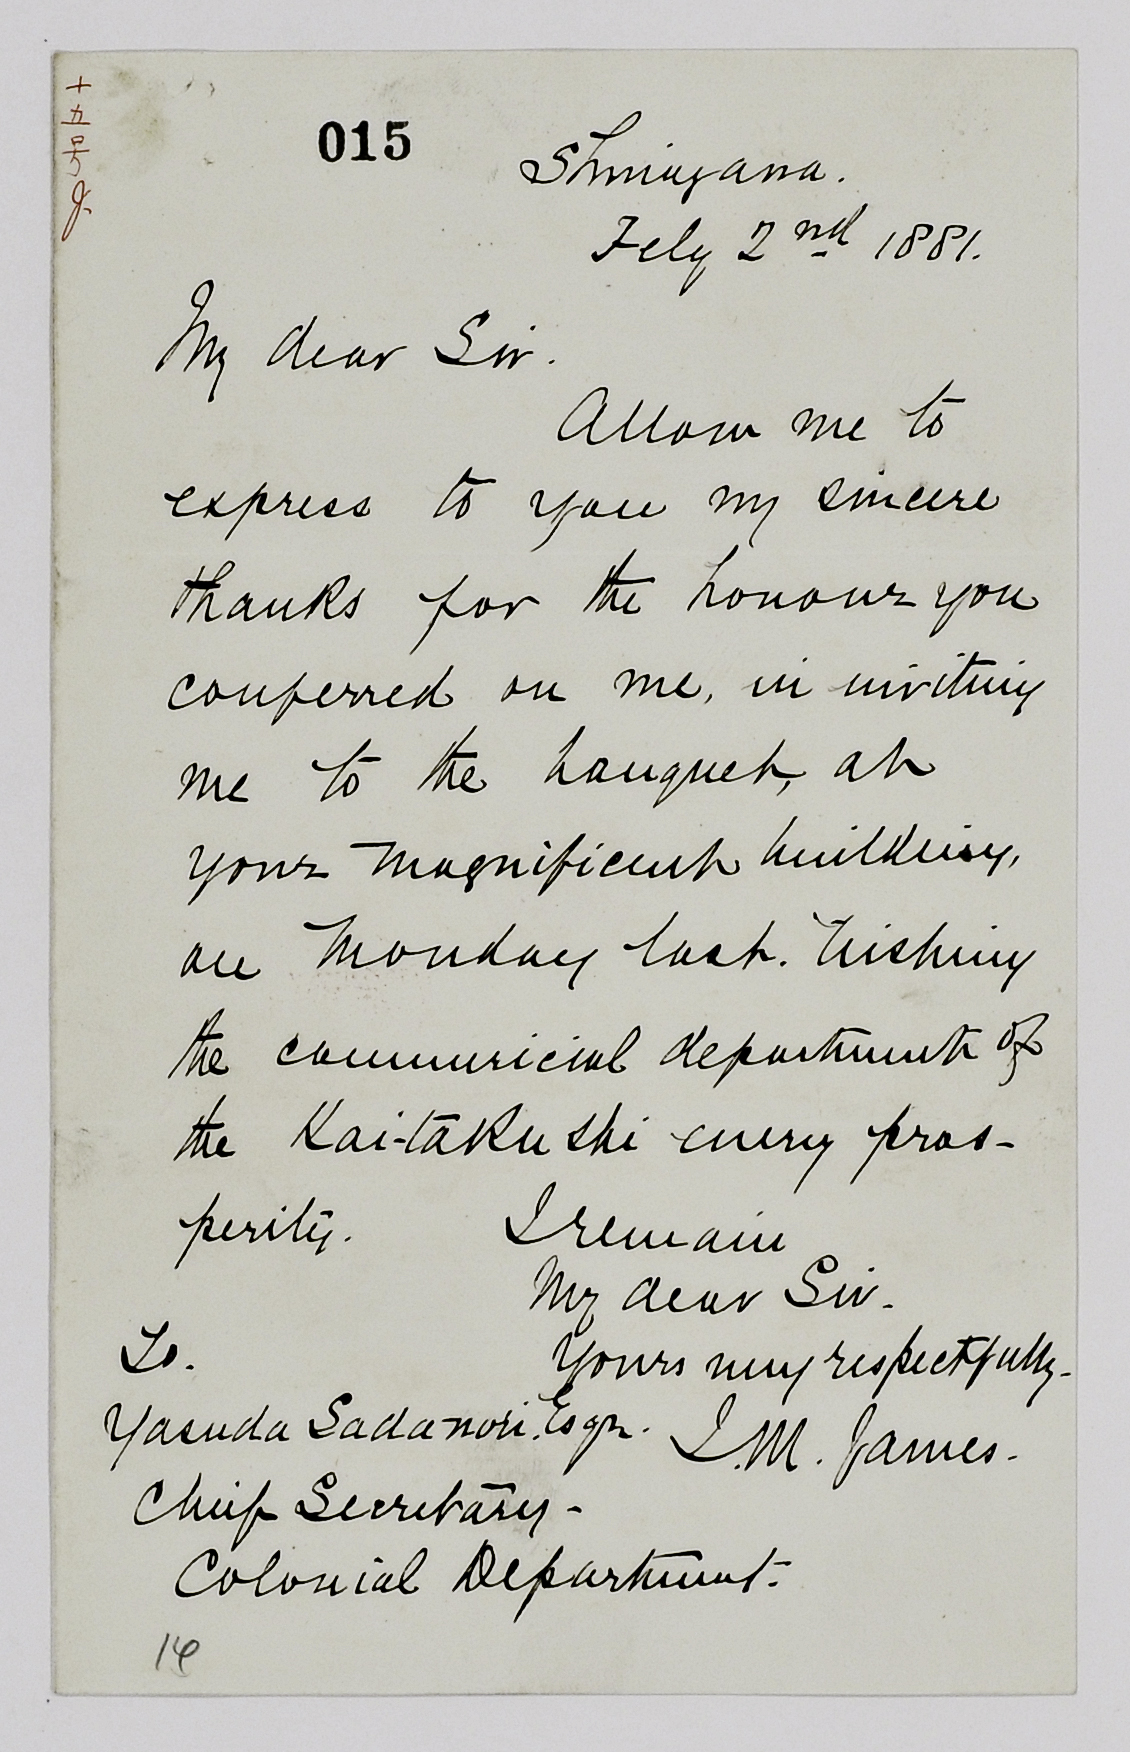 十五号
015
Shinagawa.
Feby 2nd 1881.
My dear Sir.
Allow me to
express to you my sincere
thanks for the honour you
conferred on me, in inviting
me to the banquet, at
your magnificent building,
on Monday last. Wishing
the commericial department of
the Kai-takushi every pros-
perity. I remain
My dear Sir.
Yours very respectfully.
J.M. James.
To.
Yasuda Sadanori. Esqr.
Chief Secretary -
Colonial Department.
14